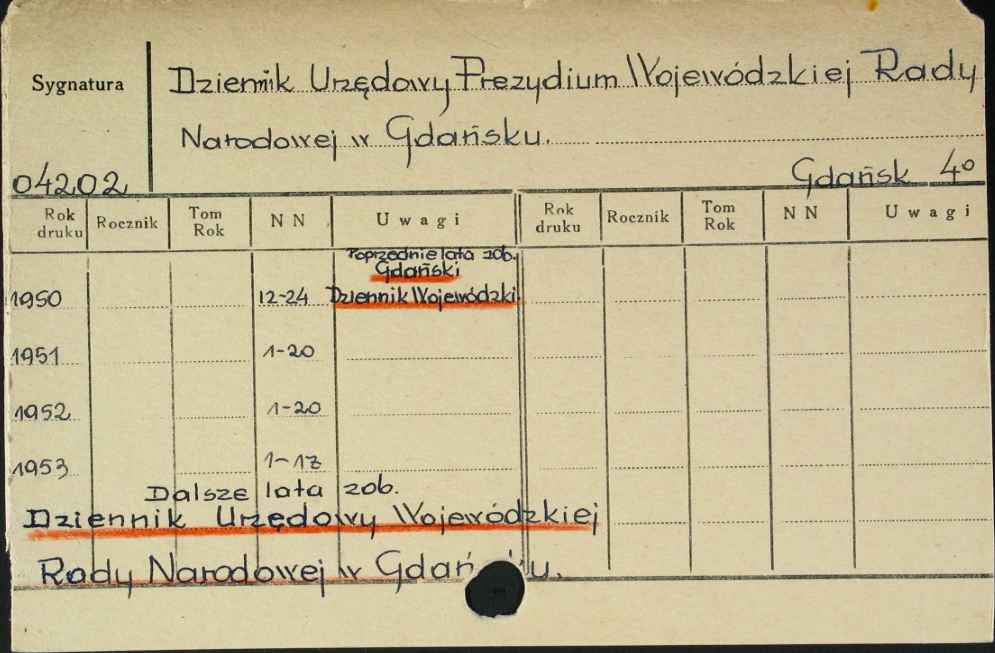 Sygnatura
Dziennik Urzędowy Prezydium Wojewódzkiej Rady
Narodowej w Gdańsku.
04202
Gdańsk 4°
Rok druku Rocznik Tom Rok NN Uwagi Rok druku Rocznik Tom Rok NN Uwagi
Poprzednie lata zob.
Gdański
1950 12-24 Dziennik Wojewódzki
1951 1-20
1952 1-20
1953 1-17
Dalsze lata zob.
Dziennik Urzędowy Wojewódzkiej
Rady Narodowej w